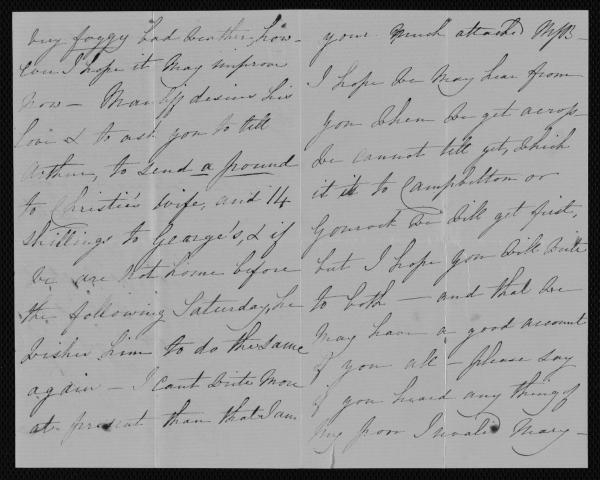 very foggy bad weather, how-
ever I hope it may improve
now — desires his
love & to ask you to tell
Arthur, to send a pound
to Christie's wife, and 14
shillings to George's, & if
we are not home before
the following Saturday, he
wishes him to do the same
again — I cant write more
at present than that I am
your much attached
I hope we may hear from
you when we get across
We cannot tell yet, which
it is to Campbelton or
Gourock we will get first,
but I hope you will write
to both — and that we
may have a good account
of you all — please say
if you heard any thing of
my poor Invalid Mary —